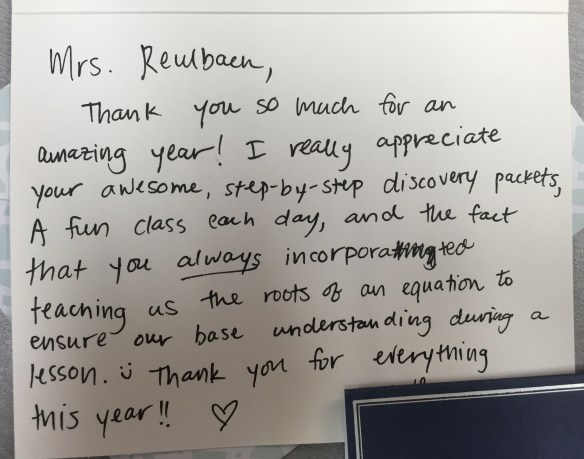 Mrs. Reulbach,
Thank you so much for an
amazing year! I really appreciate
your awesome, step-by-step discovery packets,
A fun class each day, and the fact
that you always incorporated
teaching us the roots of an equation to
ensure our base understanding during a
lesson. ü Thank you for everything
this year!! ♡